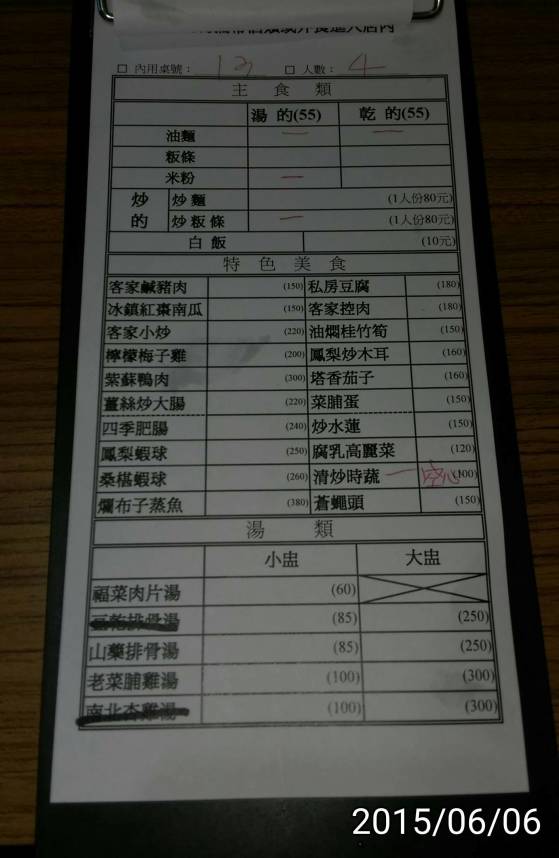 □ 內用桌號： 12 □ 人數： 4
主 食 類
湯 的(55) 乾 的(55)
油麵 一 一
粄條
米粉 一
炒的 炒麵 (1人份80元)
炒粄條 一 (1人份80元)
白飯 (10元)
特 色 美 食
客家鹹豬肉 (150) 私房豆腐 (180)
冰鎮紅棗南瓜 (150) 客家控肉 (180)
客家小炒 (220) 油燜桂竹筍 (150)
檸檬梅子雞 (200) 鳳梨炒木耳 (160)
紫蘇鴨肉 (300) 塔香茄子 (160)
薑絲炒大腸 (220) 菜脯蛋 (150)
四季肥腸 (240) 炒水蓮 (150)
鳳梨蝦球 (250) 腐乳高麗菜 (120)
桑椹蝦球 (260) 清炒時蔬 一 空心 (100)
爛布子蒸魚 (380) 蒼蠅頭 (150)
湯 類
小盅 大盅
福菜肉片湯 (60)
排骨湯 (85) (250)
山藥排骨湯 (85) (250)
老菜脯雞湯 (100) (300)
南北杏雞湯 (100) (300)
2015/06/06